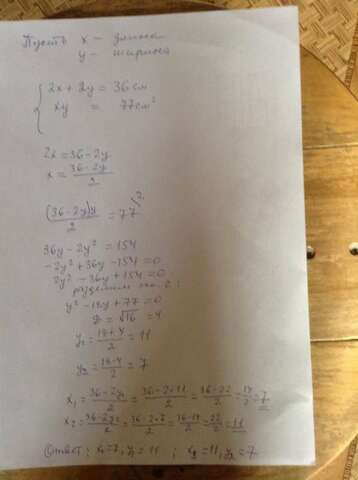 Пусть x – длина
y – ширина
{ 2x + 2y = 36 см
xy = 77 см²
2x = 36 - 2y
x = (36 - 2y)/2
(36 - 2y)y/2 = 77 \2
36y - 2y² = 154
-2y² + 36y - 154 = 0
2y² - 36y + 154 = 0
разделим на 2:
y² - 18y + 77 = 0
D = √16 = 4
y₁ = (18 + 4)/2 = 11
y₂ = (18 - 4)/2 = 7
x₁ = (36 - 2y₁)/2 = (36 - 2·11)/2 = (36 - 22)/2 = 14/2 = 7
x₂ = (36 - 2y₂)/2 = (36 - 2·7)/2 = (36 - 14)/2 = 22/2 = 11
Ответ: x₁ = 7, y₁ = 11 ; x₂ = 11, y₂ = 7